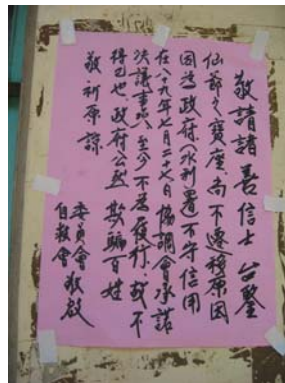 敬請諸善信士 台鑒
仙爺之寶座尚不遷移原因
因為政府(水利署)不守信用
在八十九年七月二十七日協調會承諾
決議事項至少不為履行,故不
得已也政府公然欺騙百姓
敬祈原諒
委員會
自救會 敬啟